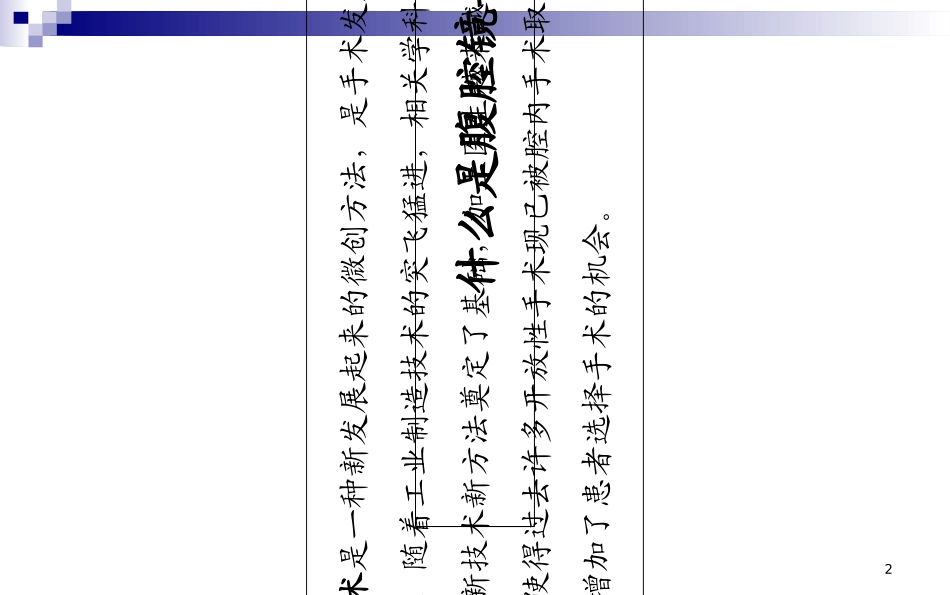 什么是腹腔镜
术是一种新发展起来的微创方法，是手术发
随着工业制造技术的突飞猛进，相关学科
新技术新方法奠定了基
使得过去许多开放性手术现已被腔内手术取
增加了患者选择手术的机会。
2